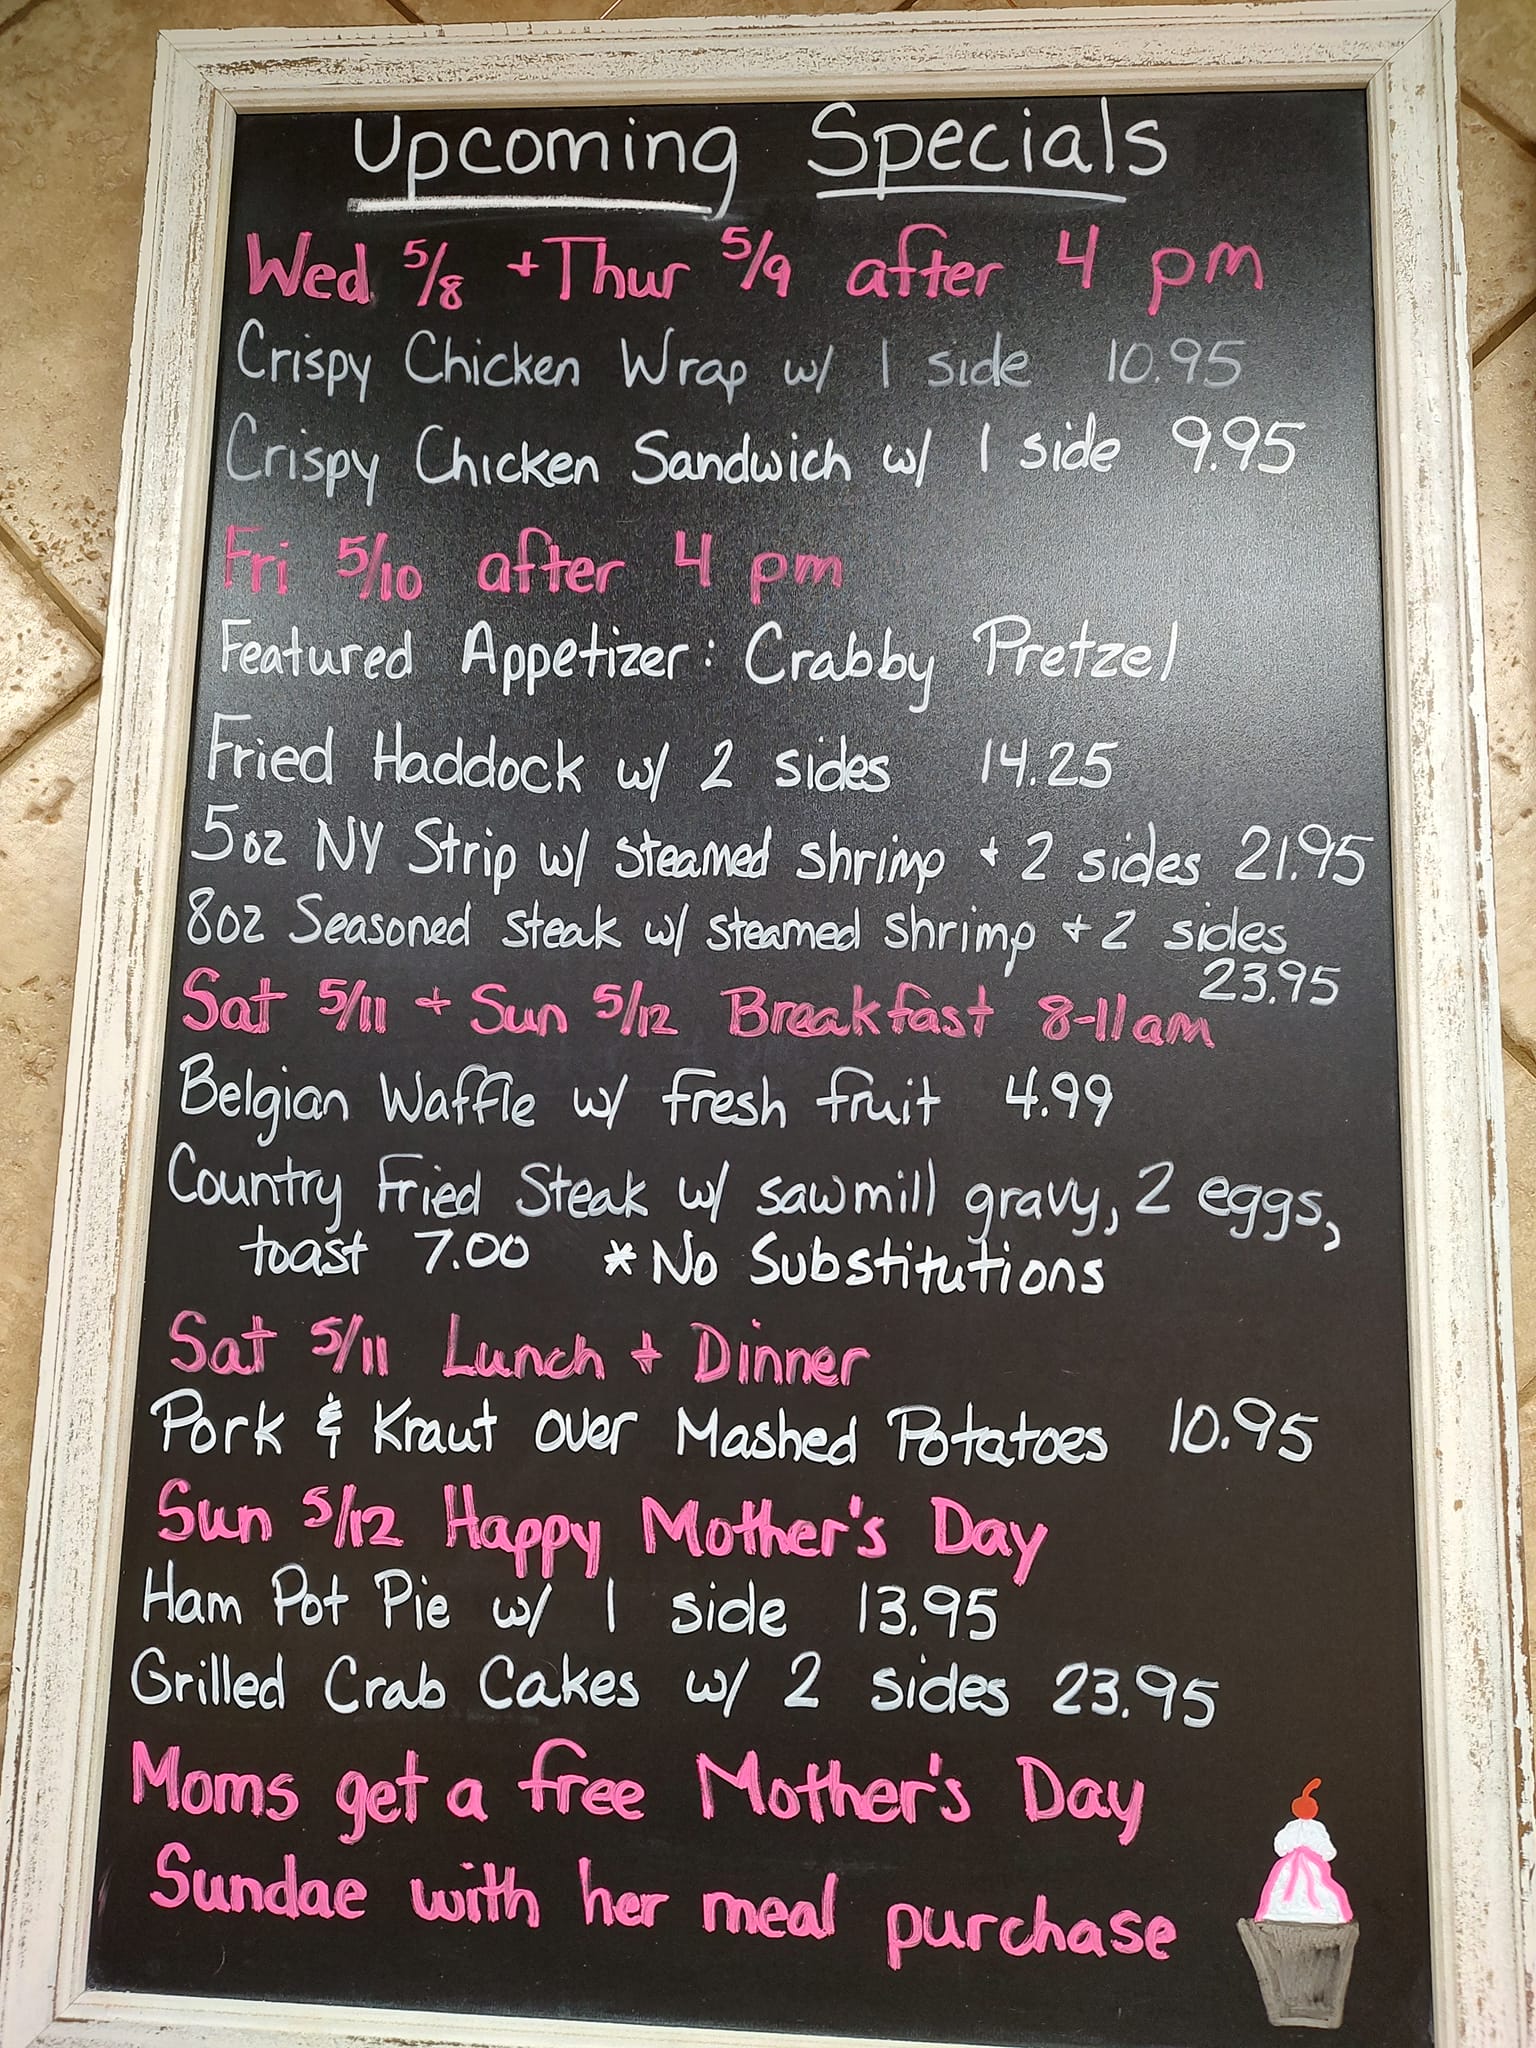 Upcoming Specials
Wed 5/8 + Thur 5/9 after 4 pm
Crispy Chicken Wrap w/ 1 side 10.95
Crispy Chicken Sandwich w/ 1 side 9.95
Fri 5/10 after 4 pm
Featured Appetizer: Crabby Pretzel
Fried Haddock w/ 2 sides 14.25
5oz NY Strip w/ steamed shrimp + 2 sides 21.95
8oz Seasoned steak w/ steamed shrimp + 2 sides
23.95
Sat 5/11 + Sun 5/12 Breakfast 8-11am
Belgian Waffle w/ fresh fruit 4.99
Country Fried Steak w/ sawmill gravy, 2 eggs,
toast 7.00 *No Substitutions
Sat 5/11 Lunch + Dinner
Pork & Kraut over Mashed Potatoes 10.95
Sun 5/12 Happy Mother's Day
Ham Pot Pie w/ 1 side 13.95
Grilled Crab Cakes w/ 2 sides 23.95
Moms get a free Mother's Day
Sundae with her meal purchase